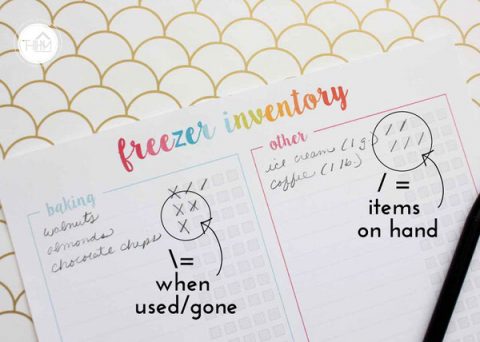 THN
freezer inventory
baking
walnuts
almonds
chocolate chips
X / /
X X
X
\=
when
used/gone
other
ice cream (1 g)
coffee (1 lb)
/ /
/ / /
/ =
items
on hand